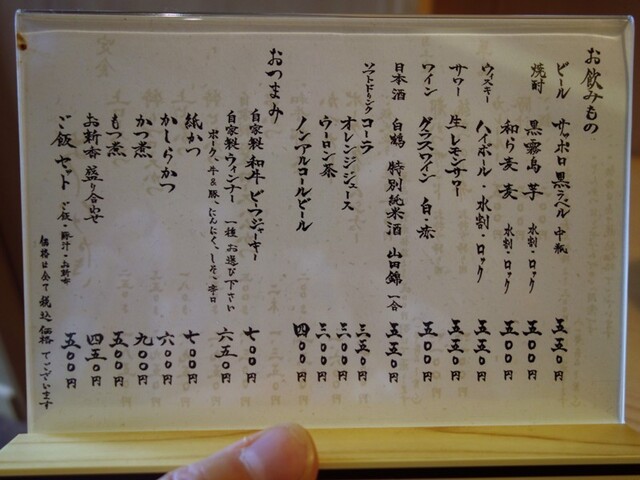 お飲みもの
ビール サッポロ黒ラベル 中瓶 五五〇円
焼酎 黒霧島 芋 水割・ロック 五〇〇円
和ら麦 麦 水割・ロック 五〇〇円
ウィスキー ハイボール・水割・ロック 五五〇円
サワー 生レモンサワー 五五〇円
ワイン グラスワイン 白・赤 五〇〇円
日本酒 白鶴 特別純米酒 山田錦 一合 五五〇円
ソフトドリンク コーラ 三五〇円
オレンジジュース 三〇〇円
ウーロン茶 三〇〇円
ノンアルコールビール 四〇〇円
おつまみ
自家製 和牛ビーフジャーキー 七〇〇円
自家製 ウィンナー 一種 お選び下さい 六五〇円
ポーク、牛&豚、にんにく、しそ、辛口
純かつ 七〇〇円
かしらかつ 六〇〇円
かつ煮 九〇〇円
もつ煮 五〇〇円
お新香 盛り合わせ 四五〇円
ご飯セット ご飯・豚汁・お新香 五〇〇円
価格は全て税込価格でございます